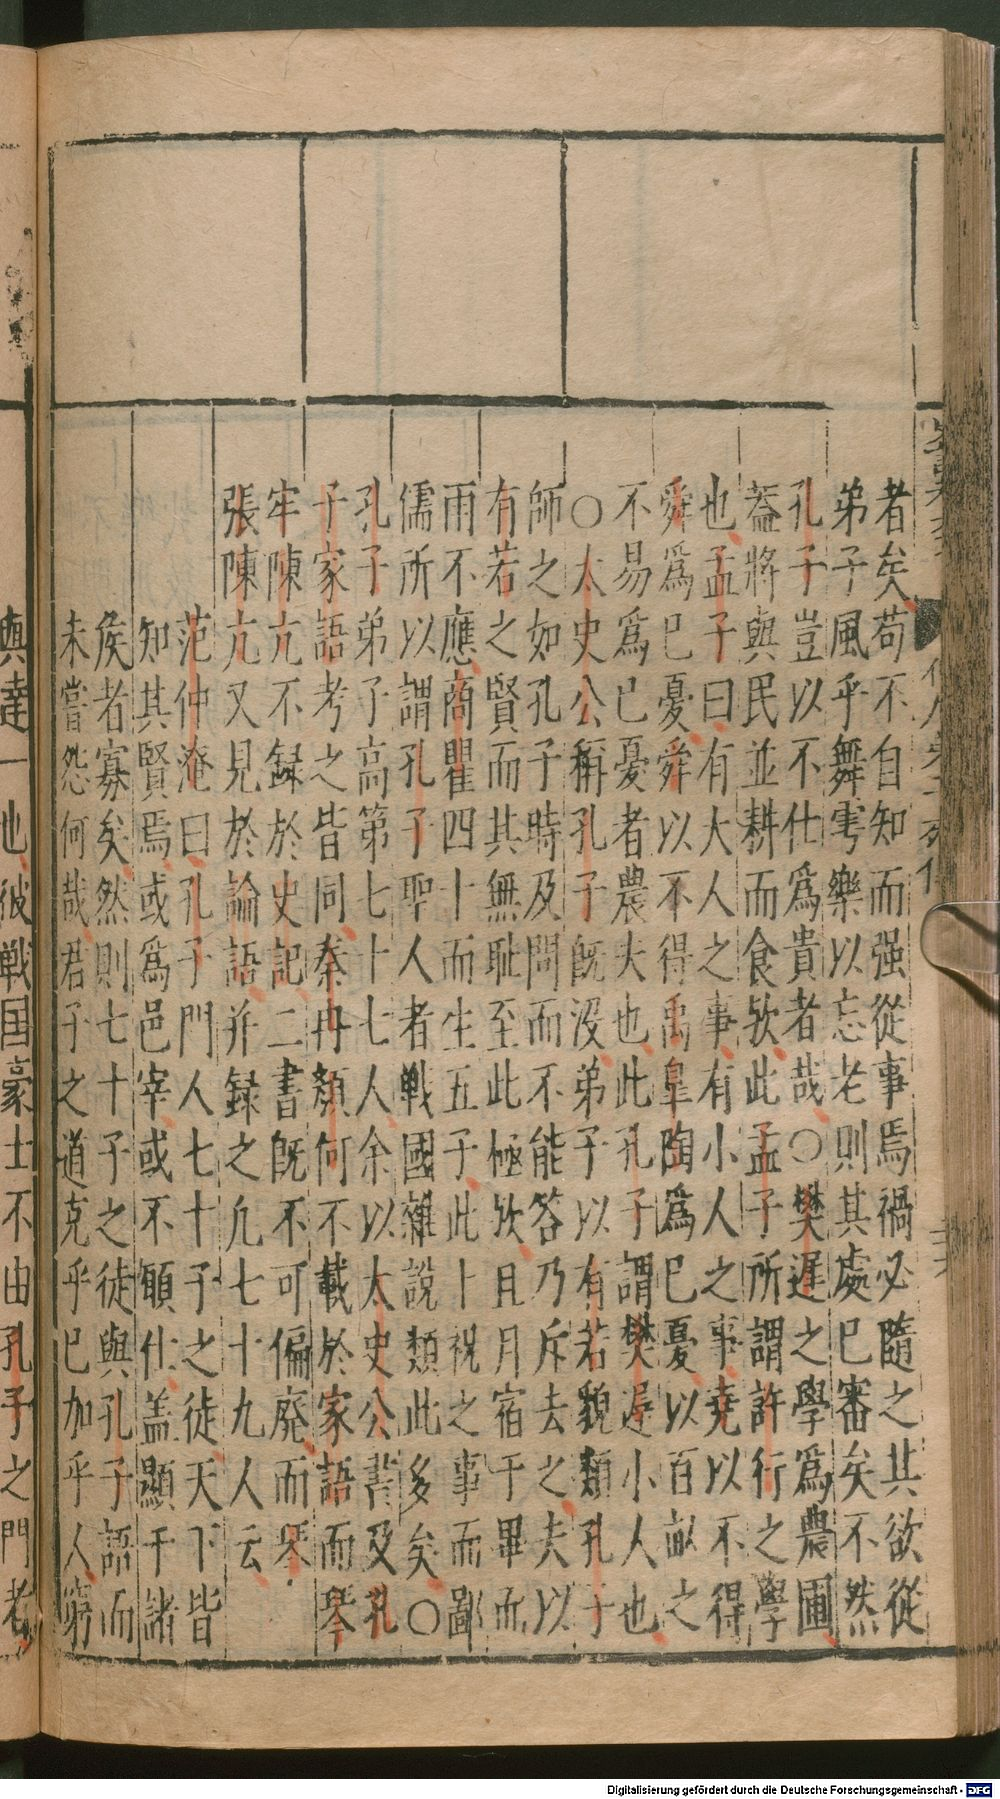 者矣苟不自知而强從事焉禍必隨之其欲從
弟子風乎舞雩樂以忘老則其處巳審矣不然
孔子豈以不仕爲貴者哉○樊遲之學爲農圃
蓋將與民並耕而食欤此孟子所謂許行之學
也孟子曰有大人之事有小人之事堯以不得
舜爲巳憂舜以不得禹皐陶爲巳憂以百畝之
不易爲巳憂者農夫也此孔子謂樊遲小人也
○太史公稱孔子既没弟子以有若貌類孔子
師之如孔子時及問而不能答乃斥去之夫以
有若之賢而其無耻至此極欤且月宿于畢而
雨不應商瞿四十而生五子此卜祝之事而鄙
儒所以謂孔子聖人者戰國雜說類此多矣○
孔子弟子高第七十七人余以太史公書及孔
子家語考之皆同秦冉顏何不載於家語而琴
牢陳亢不録於史記二書既不可偏廢而琴
張陳亢又見於論語并録之凢七十九人云
范仲淹曰孔子門人七十子之徒天下皆
知其賢焉或爲邑宰或不願仕盖顯于諸
侯者寡矣然則七十子之徒與孔子語而
未嘗怨何哉君子之道克乎巳加乎人窮
與達一也彼戰国豪士不由孔子之門者